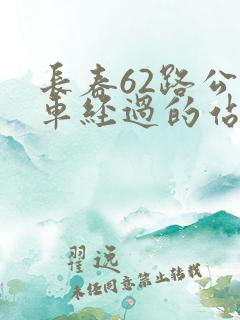 長春62路公
車經過的佔
翟远
未经同意禁止转载